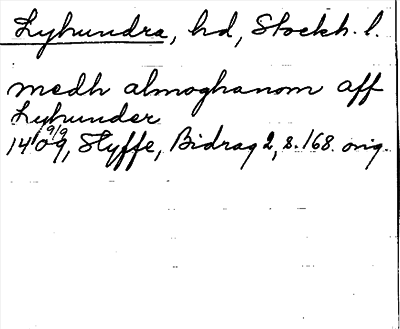 Lyhundra, hd, Stockh. l.
medh almoghanom aff
Lyhunder
14 9/9 09, Styffe, Bidrag 2, s. 168. orig.